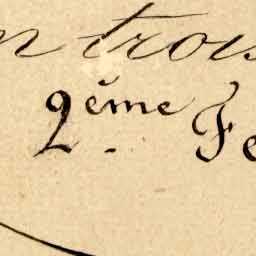 n trois
2ème Fe